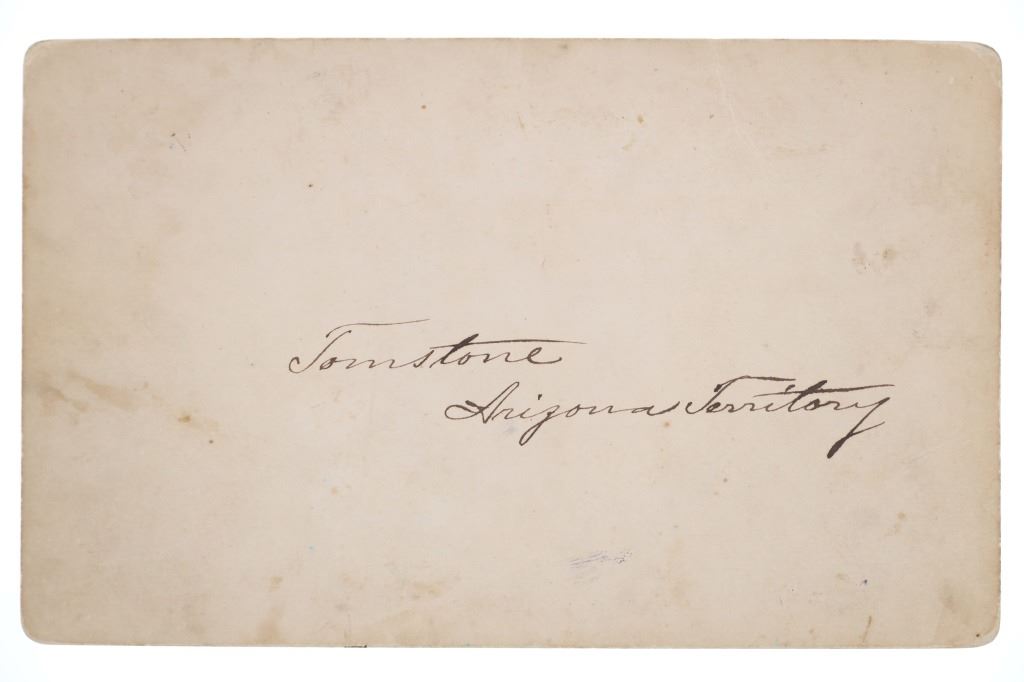 Tomstone
Arizona Territory